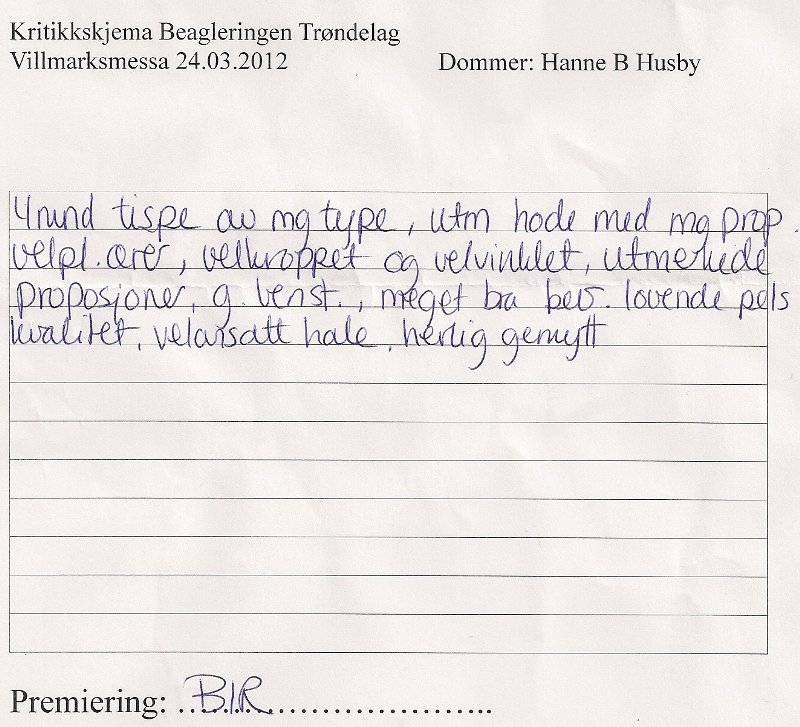 Kritikkskjema Beagleringen Trøndelag
Villmarksmessa 24.03.2012 Dommer: Hanne B Husby
4mnd tispe av mg type, utm hode med mg prop.
velpl. ører, velkroppet og velvinklet, utmerkede
proposjoner, g. benst., meget bra bev. lovende pels
kvalitet, velansatt hale, herlig gemytt
Premiering: ..B.I.R............................